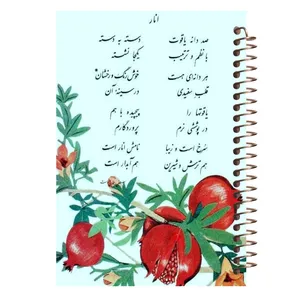 انار
صد دانه یاقوت دسته به دسته
با نظم و ترتیب یکجا نشسته
هر دانه‌ای هست خوش رنگ و رخشان
قلب سفیدی در سینهٔ آن
یاقوتها را پیچیده با هم
در پوششی نرم پروردگارم
سرخ است و زیبا نامش انار است
هم ترش و شیرین هم آبدار است